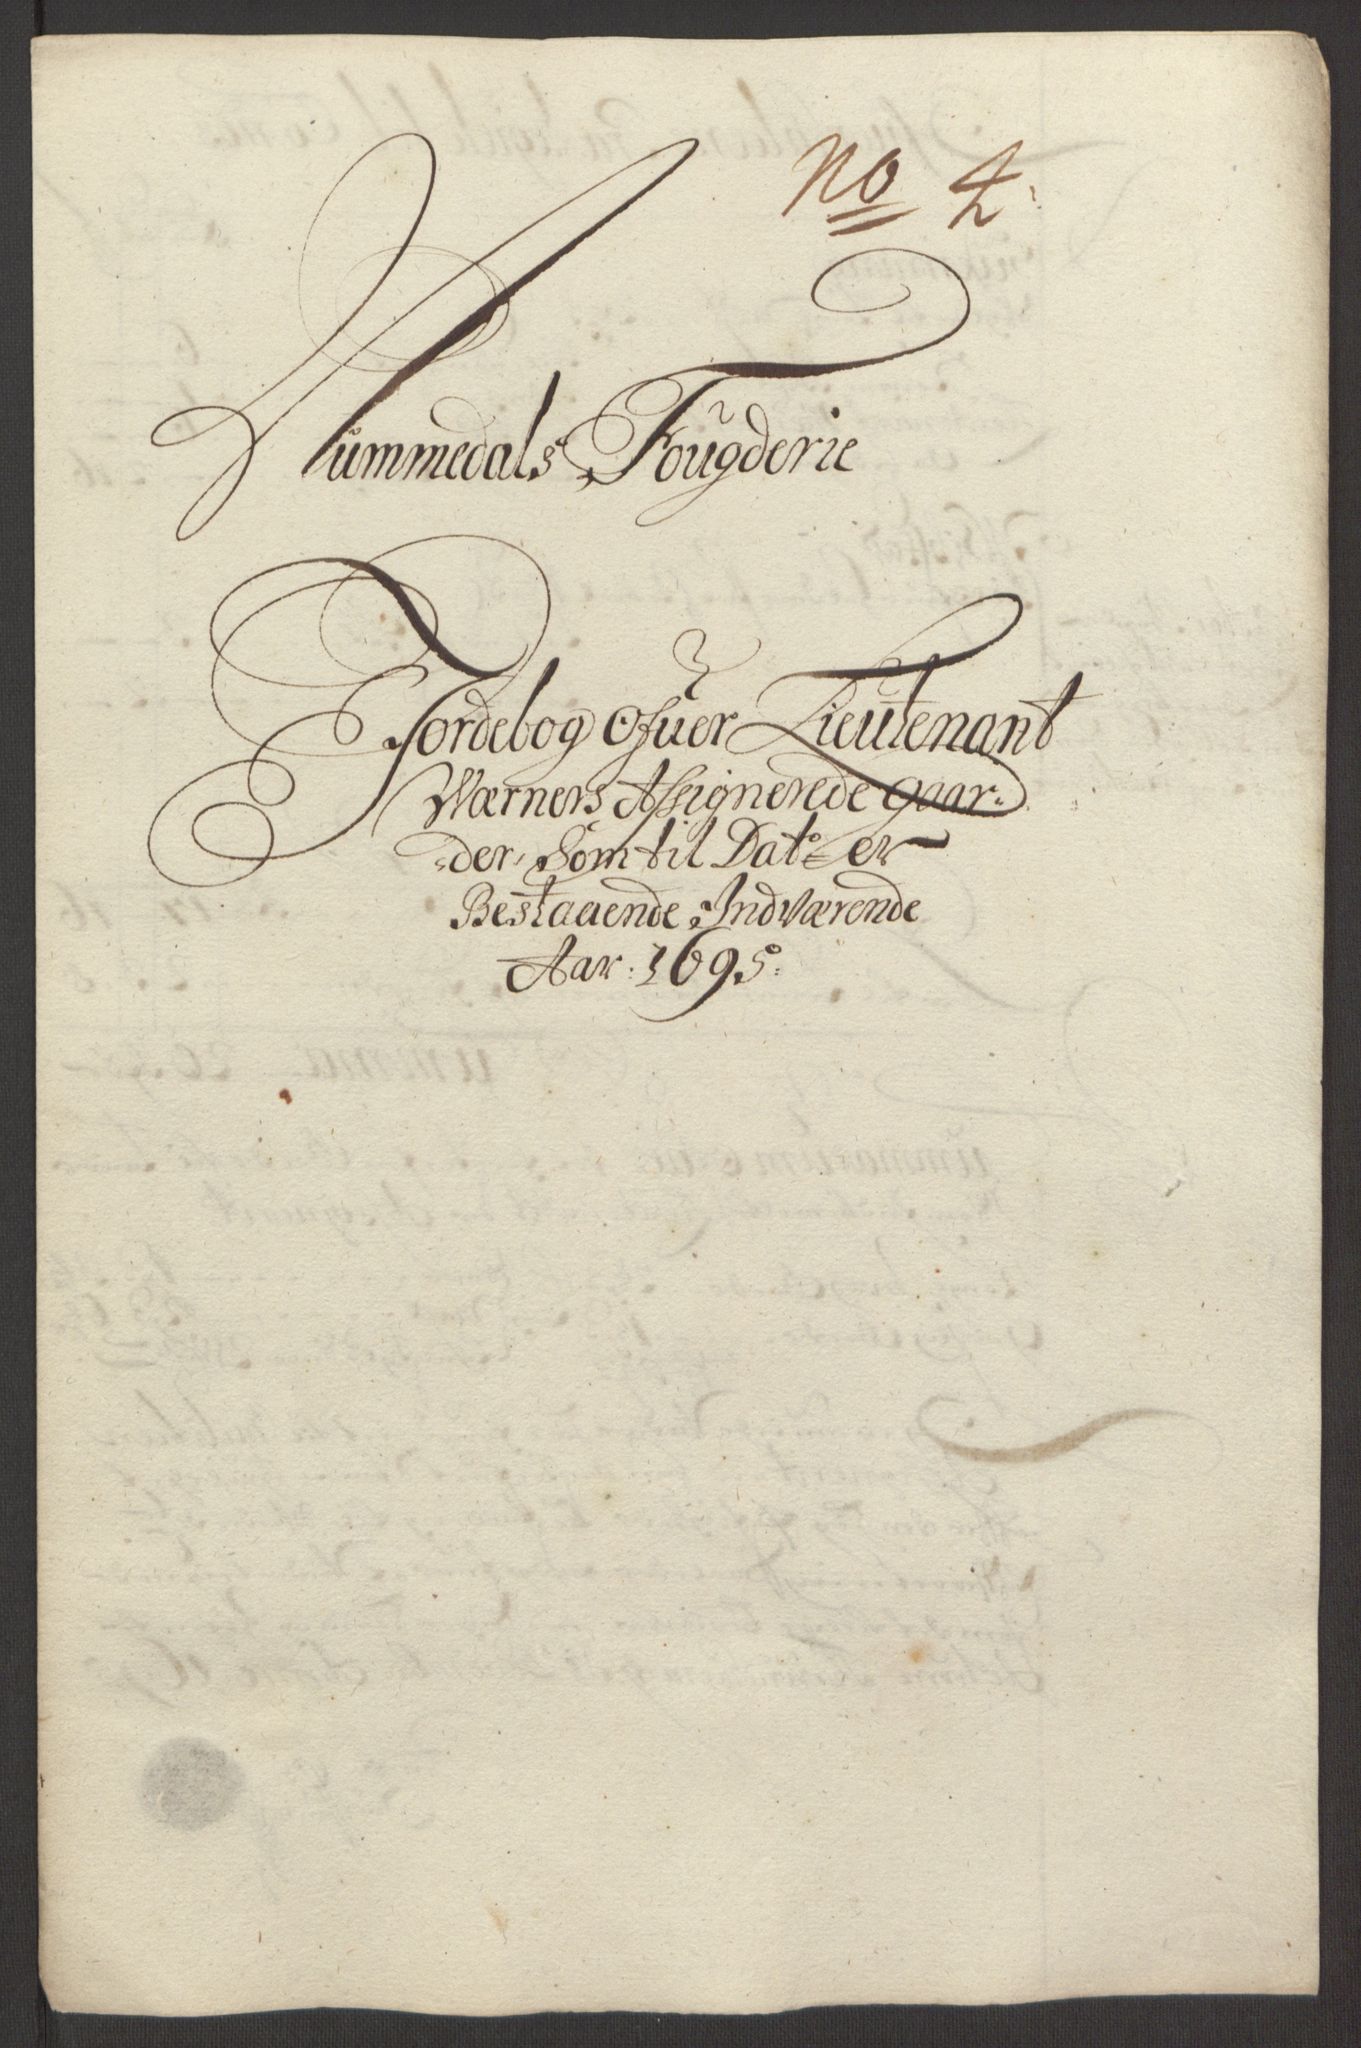 No 4
Nummedals Fougderie
Jordebog Ofuer Lieutenant
Wærners Assignerede gaar-
der, Som til Dato er
Bestaaende Indværende
Aar. 1695.